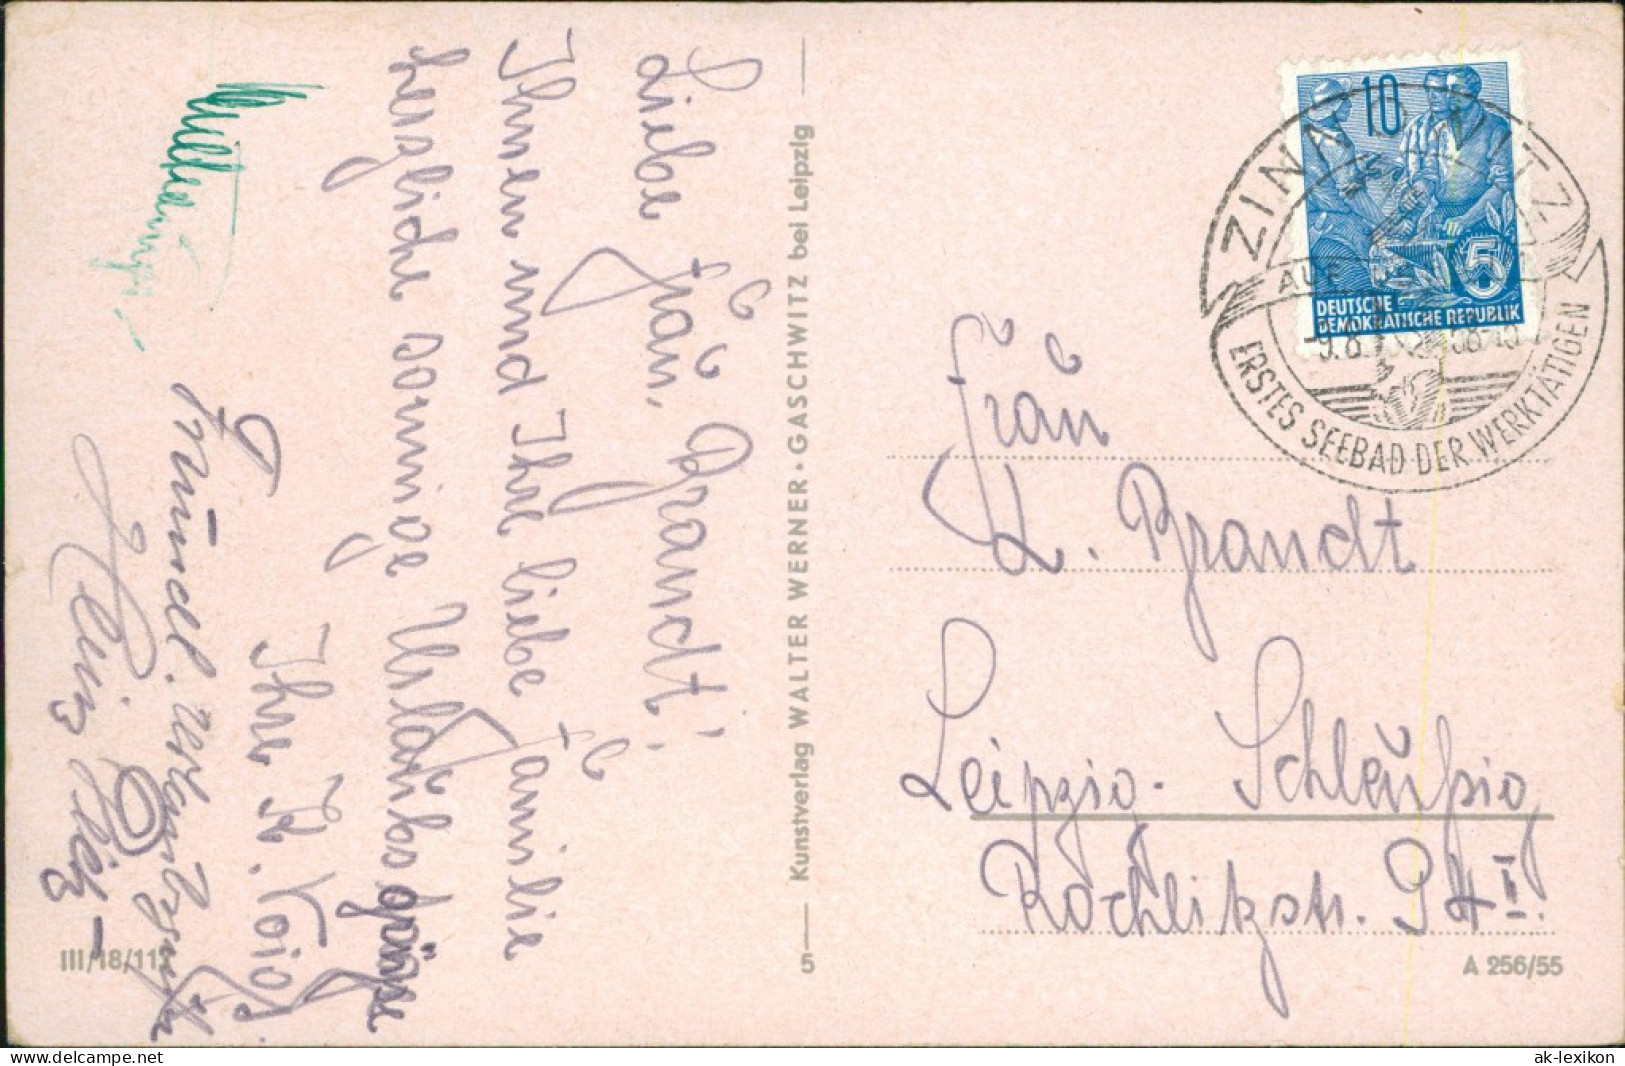 Liebe Frau Brandt!
Ihnen und Ihre liebe Familie
herzliche sonnige Urlaubsgrüße
Ihre K. Voigt
Freundl. Urlaubsgrüße
Heinz
Kunstverlag WALTER WERNER · GASCHWITZ bei Leipzig
5
III/18/117
A 256/55
10
5
DEUTSCHE
DEMOKRATISCHE REPUBLIK
ZINNOWITZ
AUF
9.8. 58-15
ERSTES SEEBAD DER WERKTÄTIGEN
Frau
K. Brandt
Leipzig-Schleußig
Rochlitzstr. 94 II.
ak-lexikon